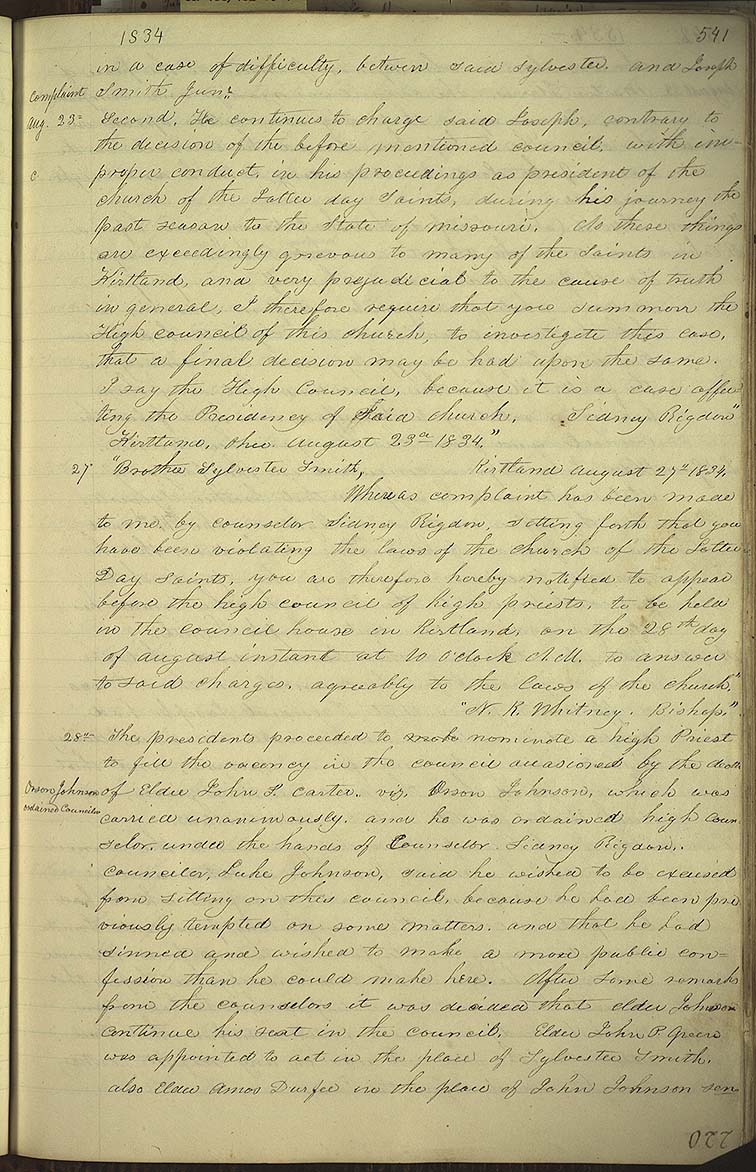 1834
541
in a case of difficulty, between said Sylvester, and Joseph
Complaint
Smith Junr.
Aug. 23d
Second, He continues to charge said Joseph, contrary to
the decision of the before mentioned council, with im-
c
proper conduct, in his proceedings as president of the
church of the Latter day Saints, during his journey the
past season to the State of missouri. As these things
are exceedingly grievous to many of the Saints in
Kirtland, and very prejudicial to the cause of truth
in general, I therefore require that you summon the
High council of this church, to investigate this case,
that a final decision may be had upon the same.
I say the High Council, because it is a case affec
ting the Presidency of Said church. Sidney Rigdon"
"Kirtland, Ohio. August 23d 1834."
27
"Brother Sylvester Smith, Kirtland august 27th 1834.
Whereas complaint has been made
to me by counselor Sidney Rigdon, setting forth that you
have been violating the laws of the church of the Latter
Day Saints, you are therefore hereby notified to appear
before the high council of high priests, to be held
in the council house in Kirtland, on the 28th day
of august instant at 10 o'clock A.M. to answer
to said charges. agreeably to the laws of the church."
"N. K. Whitney. Bishop."
28th
The presidents proceeded to make nominate a high Priest
to fill the vacency in the council occasioned by the death
Orson Johnson
ordained Councilor
of Elder John S. Carter. viz, Orson Johnson, which was
carried unanimously. and he was ordained high coun
selor, under the hands of Counselor Sidney Rigdon.
Councilor, Luke Johnson, said he wished to be excused
from sitting on this council, because he had been pre
viously tempted on some matters. and that he had
sinned and wished to make a more public con=
fession than he could make here. After some remarks
from the counselors it was decided that elder Johnson
continue his seat in the council. Elder John P. Green
was appointed to act in the place of Sylvester Smith.
also Elder Amos Durfee in the place of John Johnson sen
220